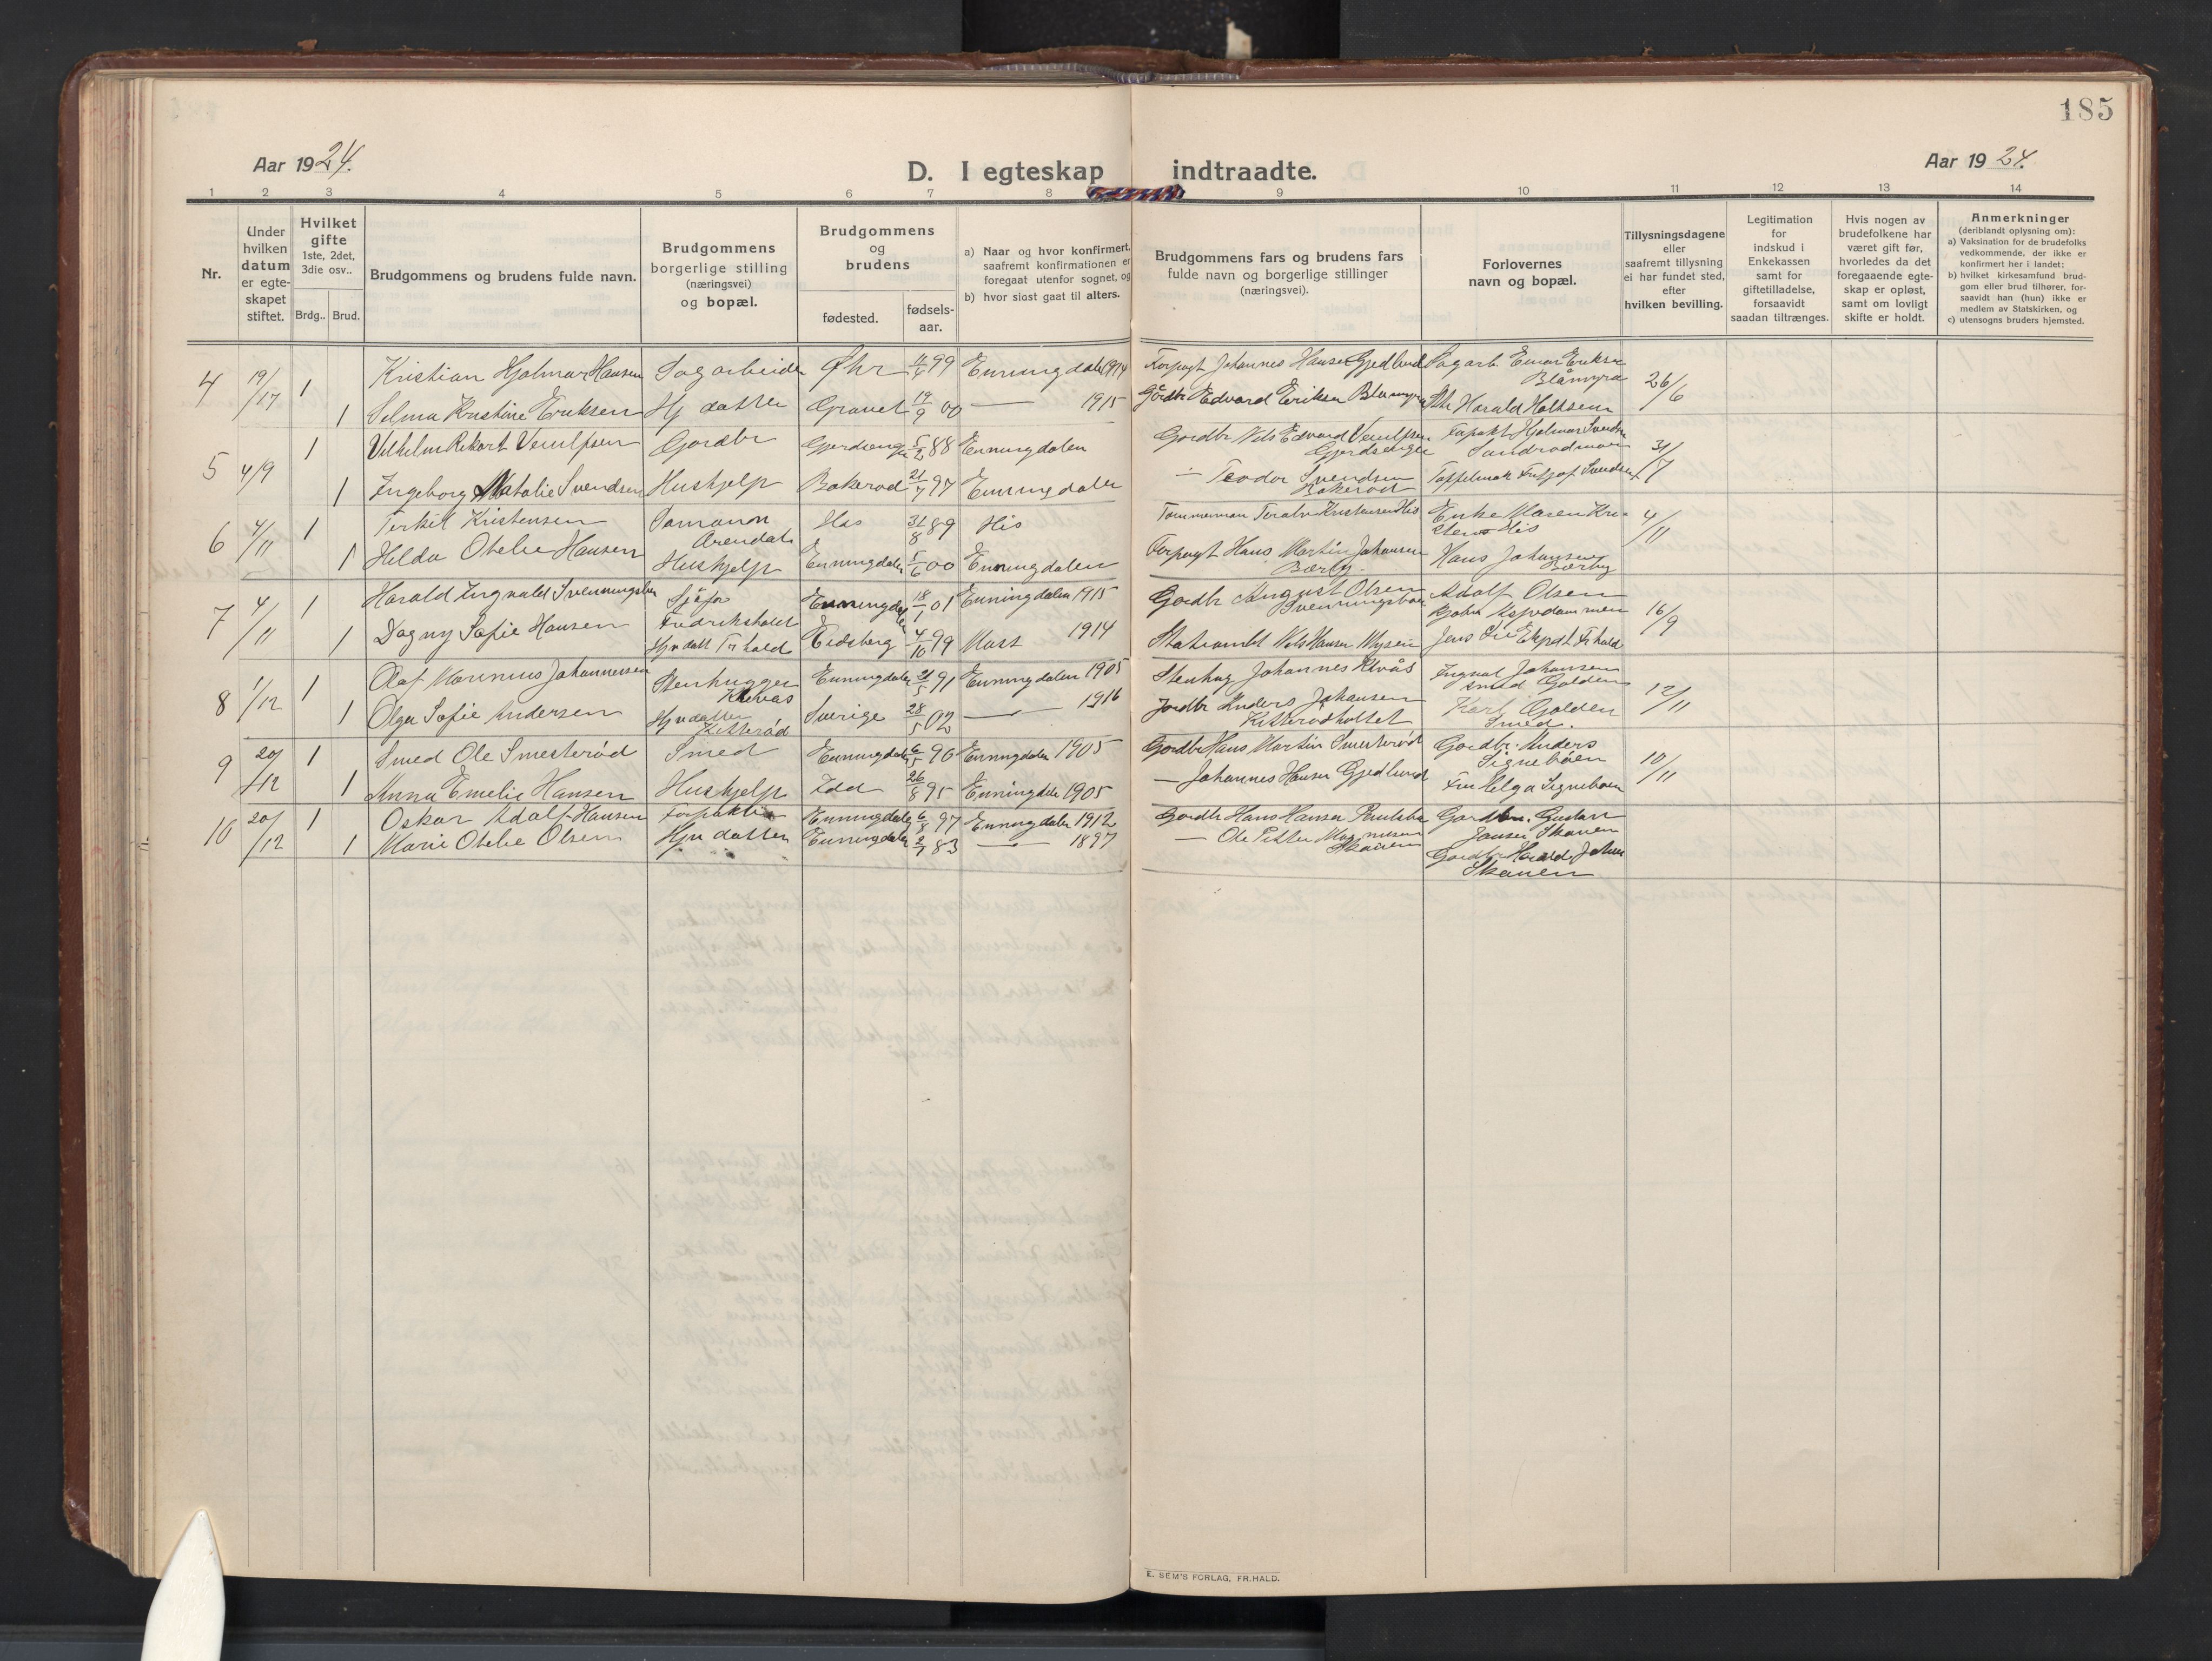 185
Aar 1924.
D. I egteskap indtraadte.
Aar 1924.
1 2 3 4 5 6 7 8 9 10 11 12 13 14
Nr.
Under hvilken datum er egte-skapet stiftet.
Hvilket gifte 1ste, 2det, 3die osv..
Brdg.. Brud.
Brudgommens og brudens fulde navn.
Brudgommens borgerlige stilling (næringsvei) og bopæl.
Brudgommens og brudens
fødested. fødsels-aar.
a) Naar og hvor konfirmert, saafremt konfirmationen er foregaat utenfor sognet, og
b) hvor sidst gaat til alters.
Brudgommens fars og brudens fars fulde navn og borgerlige stillinger (næringsvei).
Forlovernes navn og bopæl.
Tillysningsdagene eller saafremt tillysning ei har fundet sted, efter hvilken bevilling.
Legitimation for indskud i Enkekassen samt for giftetilladelse, forsaavidt saadan tiltrænges.
Hvis nogen av brudefolkene har været gift før, hvorledes da det foregaaende egte-skap er opløst, samt om lovligt skifte er holdt.
Anmerkninger (deriblandt oplysning om):
a) Vaksination for de brudefolks vedkommende, der ikke er konfirmert her i landet;
b) hvilket kirkesamfund brud-gom eller brud tilhører, for-saavidt han (hun) ikke er medlem av Statskirken, og
c) utensogns bruders hjemsted.
4 19/17 1 Kristian Hjalmar Hansen Sagarbeide Øhr 99 Enningdalen 1914 Forpagt Johannes Hansen Gjedlund Sagarb. Einar Eriksen Blåmyra 26/6
1 Selma Kristine Eriksen Hj datter Gravet 19/9 00 — 1915 Gårdbr Edvard Eriksen Blåmyra Harald Holtsem
5 4/9 1 Vilhelm Rikart Venulfsen Gardbr Gjerdsenge 5/2 88 Enningdalen Gardbr Nils Edvard Venulfsen Gjerdsengen Hjalmar Svendsen 31/7
1 Ingeborg Natalie Svendsen Hushjelp Bakerød 21/7 97 Enningdalen — Teodor Svendsen Bakerød Fritjof Svendsen
6 4/11 1 Terkel Kristensen Sømann Arendal His 31/8 89 His Tømmerman Kristensen His Enke Maren Kri-stens His 4/11
1 Hilda Otelie Hansen Hushjelp Enningdalen 5/6 00 Enningdalen Forpagt Hans Martin Johansen Bærby. Hans Johansen Bærby
7 4/11 1 Harald Ingvald Svenningsen Sjåfør Fredrikshald Enningdalen 18/1 01 Enningdalen 1915 Gardbr August Olsen Adolf Olsen 16/9
1 Dagny Sofie Hansen Hjv datt Fr hald Eidsberg 4/10 99 Moss 1914 Nils Hansen Mysen Jens Fr hald
8 1/12 1 Olaf Marinius Johannessen Stenhugger Klevas Enningdalen 21/5 91 Enningdalen 1905 Stenhug Johannes Klevås Ingval Johansen smed Golden 12/11
1 Olga Sofie Andersen Hjvdatter Kitterød Sverige 28/5 02 — 1916 Jordbr Anders Johansen Kitterødholtet Karl Golden Smed.
9 20/12 1 Smed Ole Smesterød Smed Enningdalen 6/5 90 Enningdalen 1905 Gardbr Hans Martin Smesterød Gardbr. Anders Signebøen 10/11
1 Anna Emelie Hansen Hushjelp Idd 26/8 95 Enningdalen 1905 — Johannes Hansen Gjedlund Fru Helga Signebøen
10 20/12 1 Oskar Adolf Hansen Forpakter Enningdalen 6/8 97 Enningdalen 1912 Gardbr Hans Hansen Paulsbo Gardbr. Gustav Jansen Skauen
1 Marie Otelie Olsen Hjv datter Enningdalen 2/7 83 — 1897 — Ole Petter Magnussen Skauen Gardbr Harald Johans Skauen
E. SEM'S FORLAG, FR.HALD.